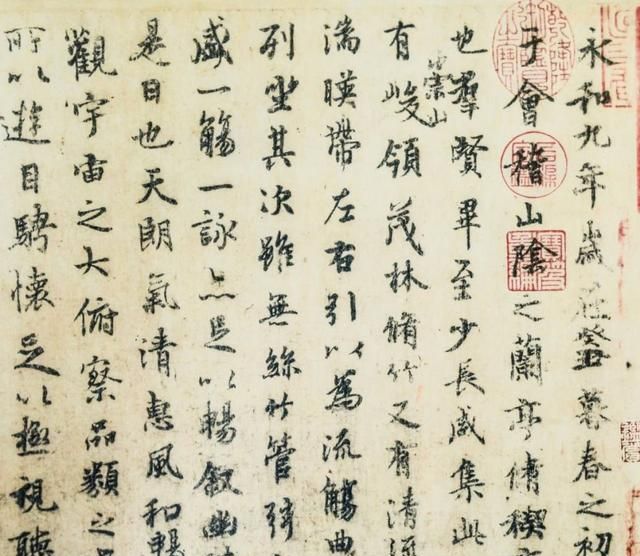 永和九年歲在癸丑暮春之初
于會稽山陰之蘭亭脩稧
地羣賢畢至少長咸集此
有崇山峻領茂林脩竹又有清流
湍暎帶左右引以為流觴曲
列坐其次雖無絲竹管弦
盛一觴一詠亦足以暢叙幽
是日也天朗氣清惠風和暢
觀宇宙之大俯察品類之
所以遊目騁懷足以極視聽